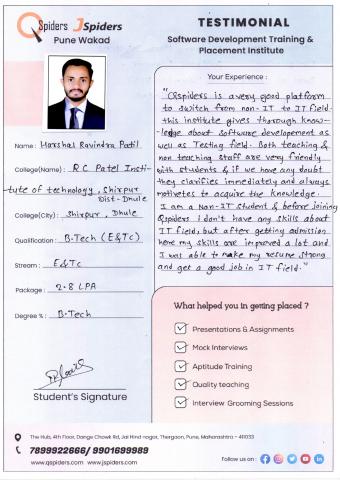 QSpiders JSpiders
Pune Wakad
TESTIMONIAL
Software Development Training &
Placement Institute
Name : Harshal Ravindra Patil
College(Name) : R C Patel Insti-
tute of technology, Shirpur
Dist-Dhule
College(City) : Shirpur, Dhule
Qualification : B-Tech (E&Tc)
Stream : E&Tc
Package : 2.8 LPA
Degree % : B.Tech
Student's Signature
Your Experience :
"QSpiders is a very good platform
to switch from non-IT to IT field.
this institute gives thorough know-
ledge about software development as
well as Testing field. Both teaching &
non teaching staff are very friendly
with students & if we have any doubt
they clarifies immediately and always
motivates to acquire the knowledge.
I am a Non-IT student & before joining
QSpiders I don't have any skills about
IT field, but after getting admission
here my skills are improved a lot and
I was able to make my resume strong
and get a good job in IT field."
What helped you in getting placed ?
Presentations & Assignments
Mock Interviews
Aptitude Training
Quality teaching
Interview Grooming Sessions
The Hub, 4th Floor, Dange Chowk Rd, Jai Hind nagar, Thergaon, Pune, Maharashtra - 411033
7899922666/ 9901699989
www.qspiders.com www.jspiders.com
Follow us on :